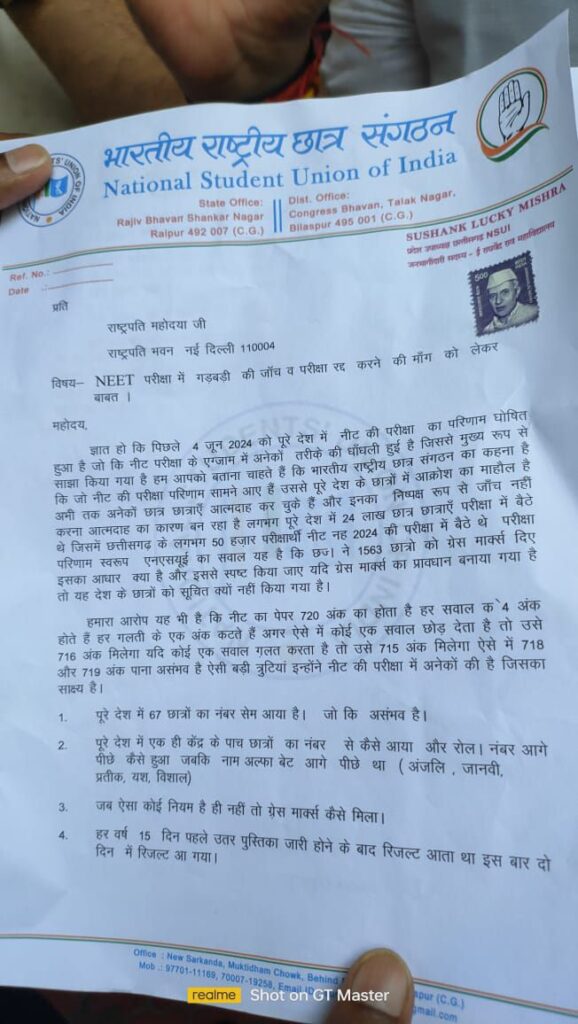 भारतीय राष्ट्रीय छात्र संगठन
National Student Union of India
State Office:
Rajiv Bhavan Shankar Nagar
Raipur 492 007 (C.G.)
Dist. Office:
Congress Bhavan, Talak Nagar,
Bilaspur 495 001 (C.G.)
SUSHANK LUCKY MISHRA
प्रदेश उपाध्यक्ष छत्तीसगढ़ NSUI
जनभागीदारी सदस्य - ई राघवेंद्र राव महाविद्यालय
Ref. No.:
Date :-
500
प्रति
राष्ट्रपति महोदया जी
राष्ट्रपति भवन नई दिल्ली 110004
विषय– NEET परीक्षा में गड़बड़ी की जॉच व परीक्षा रद्द करने की मॉग को लेकर
बाबत ।
महोदय,
ज्ञात हो कि पिछले 4 जून 2024 को पूरे देश में नीट की परीक्षा का परिणाम घोषित
हुआ है जो कि नीट परीक्षा के एग्जाम में अनेकों तरीके की धॉंधली हुई है जिससे मुख्य रूप से
साझा किया गया है हम आपको बताना चाहते हैं कि भारतीय राष्ट्रीय छात्र संगठन का कहना है
कि जो नीट की परीक्षा परिणाम सामने आए हैं उससे पूरे देश के छात्रों में आक्रोश का माहौल है
अभी तक अनेकों छात्र छात्राऍ आत्मदाह कर चुके हैं और इनका निष्पक्ष रूप से जॉच नहीं
करना आत्मदाह का कारण बन रहा है लगभग पूरे देश में 24 लाख छात्र छात्राऍ परीक्षा में बैठे
थे जिसमें छत्तीसगढ़ के लगभग 50 हज़ार परीक्षार्थी नीट नह 2024 की परीक्षा में बैठे थे परीक्षा
परिणाम स्वरूप एनएसयूई का सवाल यह है कि छज। ने 1563 छात्रो को ग्रेस मार्क्स दिए
इसका आधार क्या है और इससे स्पष्ट किया जाए यदि ग्रेस मार्क्स का प्रावधान बनाया गया है
तो यह देश के छात्रों को सूचित क्यों नहीं किया गया है।
हमारा आरोप यह भी है कि नीट का पेपर 720 अंक का होता है हर सवाल क`4 अंक
होते हैं हर गलती के एक अंक कटते हैं अगर ऐसे में कोई एक सवाल छोड़ देता है तो उसे
716 अंक मिलेगा यदि कोई एक सवाल ग़लत करता है तो उसे 715 अंक मिलेगा ऐसे में 718
और 719 अंक पाना असंभव है ऐसी बड़ी त्रुटियां इन्होंने नीट की परीक्षा में अनेकों की है जिसका
साक्ष्य है।
1. पूरे देश में 67 छात्रों का नंबर सेम आया है। जो कि असंभव है।
2. पूरे देश में एक ही केंद्र के पाच छात्रों का नंबर से कैसे आया और रोल। नंबर आगे
पीछे कैसे हुआ जबकि नाम अल्फा बेट आगे पीछे था ( अंजलि , जानवी,
प्रतीक, यश, विशाल)
3. जब ऐसा कोई नियम है ही नहीं तो ग्रेस मार्क्स कैसे मिला।
4. हर वर्ष 15 दिन पहले उतर पुस्तिका जारी होने के बाद रिजल्ट आता था इस बार दो
दिन में रिजल्ट आ गया।
Office : New Sarkanda, Muktidham Chowk, Behind
Mob .: 97701-11169, 70007-19258, Email ID
spur (C.G.)
gmail.com
realme Shot on GT Master